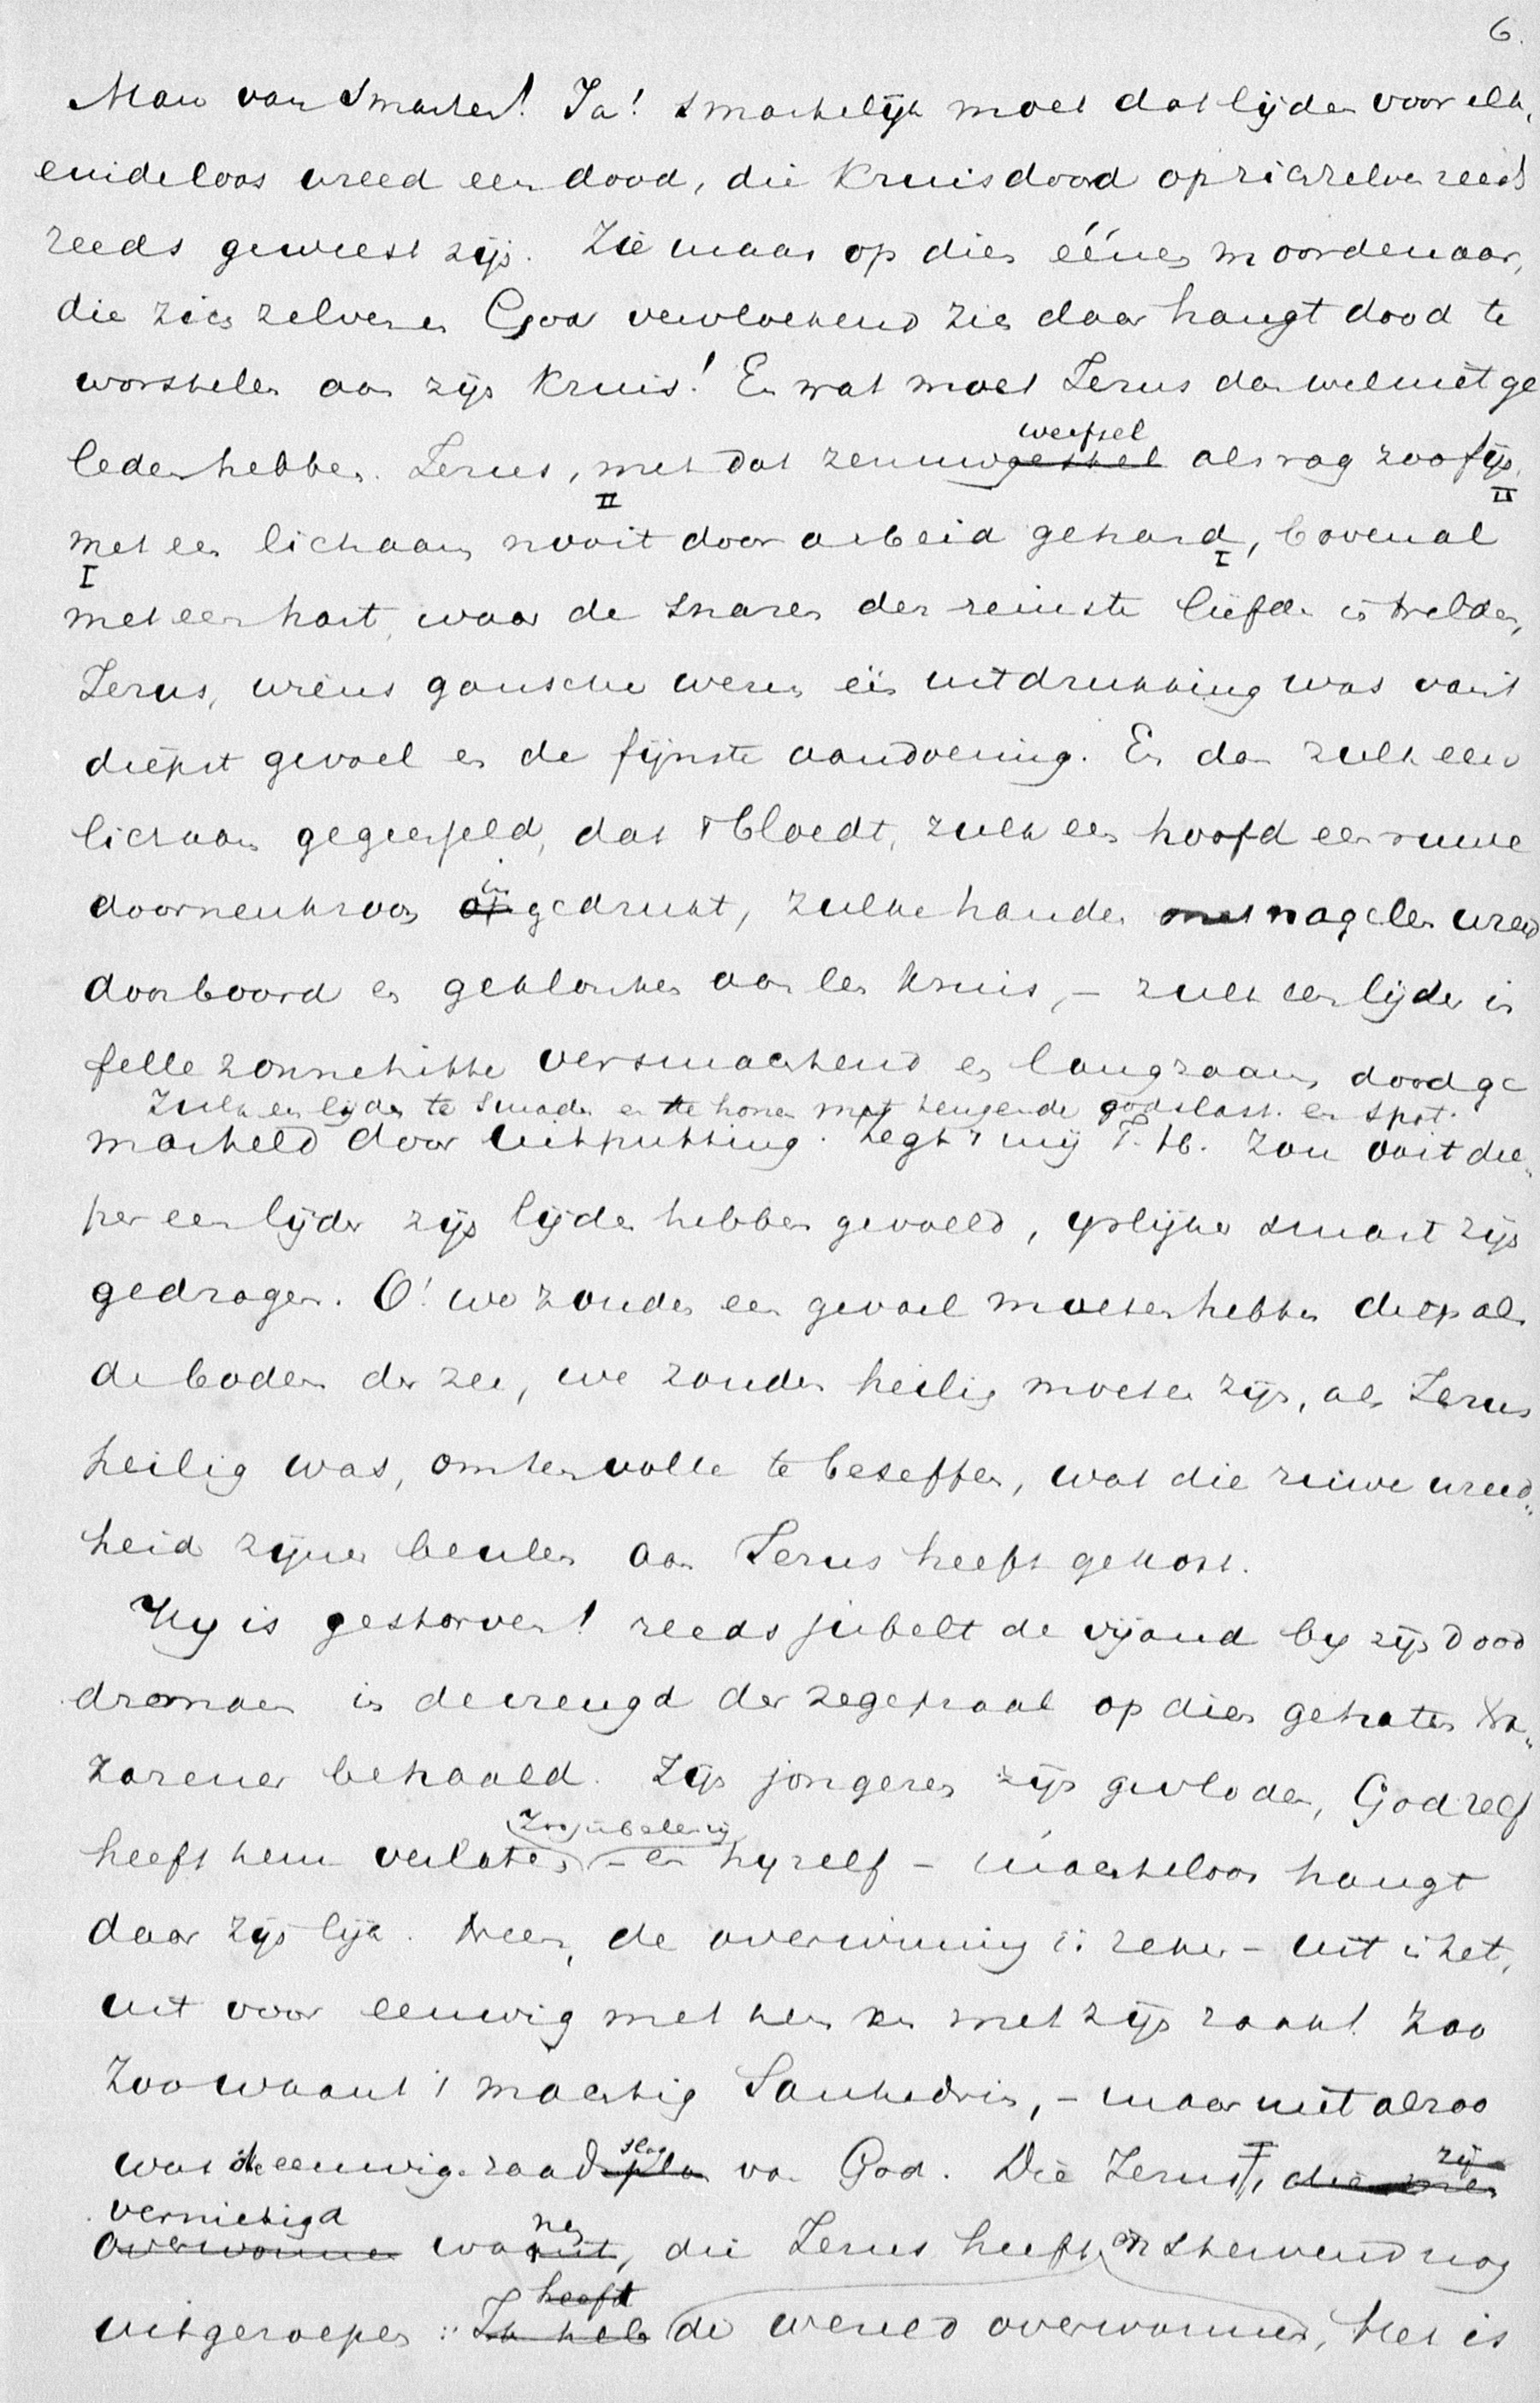 6.
Man van Smarten! Ja! smartelijk moet dat lijden voor elk,
eindeloos wreed een dood, die kruisdood op zichzelven reeds
reeds geweest zijn. Zie maar op dien éénen moordenaar,
die zich zelven en God vervloekend zich daar hangt dood te
worstelen aan zijn kruis! En wat moet Jezus dan wel niet ge
leden hebben. Jezus, met dat zenuwgestel als rag zoo fijn,
weefsel
II II
met een lichaam nooit door arbeid gehard, bovenal
I I
met een hart, waar de snaren der reinste liefde in trilden,
Jezus, wiens gansche wezen één uitdrukking was van 't
diepst gevoel en de fijnste aandoening. En dan zulk een
lichaam gegeeseld, dat 't bloedt, zulk een hoofd een ruwe
doornenkroon op gedrukt, zulke handen met nagelen wreed
in
doorboord en geklonken aan een kruis, – zulk een lijder in
felle zonnehitte versmachtend en langzaam doodge
zulk een lijder te smaden en te honen met tergende godslast. en spot.
marteld door uitputting. Zegt 't mij T. H. zou ooit die-
per een lijder zijn lijden hebben gevoeld, ijslijker smart zijn
gedragen. O! we zouden een gevoel moeten hebben diep als
de bodem der zee, we zouden heilig moeten zijn, als Jezus
heilig was, om ten volle te beseffen, wat die ruwe wreed-
heid zijner beulen aan Jezus heeft gekost.
Hy is gestorven! reeds jubelt de vijand by zijn dood
dronken in de vreugd der zegepraal op dien gehaten Na-
zarener behaald. Zijn jongeren zijn gevloden, God zelf
heeft hem verlaten – en hyzelf – machteloos hangt
Zoo jubelen zij
daar zijn lijk. Neen, de overwinning is zeker – uit is het,
uit voor eeuwig met hem en met zijn zaak! Zoo
Zoo waant 't machtig Sanhedrin, – maar niet alzoo
was de eeuwige raadsplan van God. Die Jezus, dien men
slag I zij
overwonnen waant, die Jezus heeft stervend nog
vernietigd nen
uitgeroepen: Ik heb de wereld overwonnen, Het is
heeft